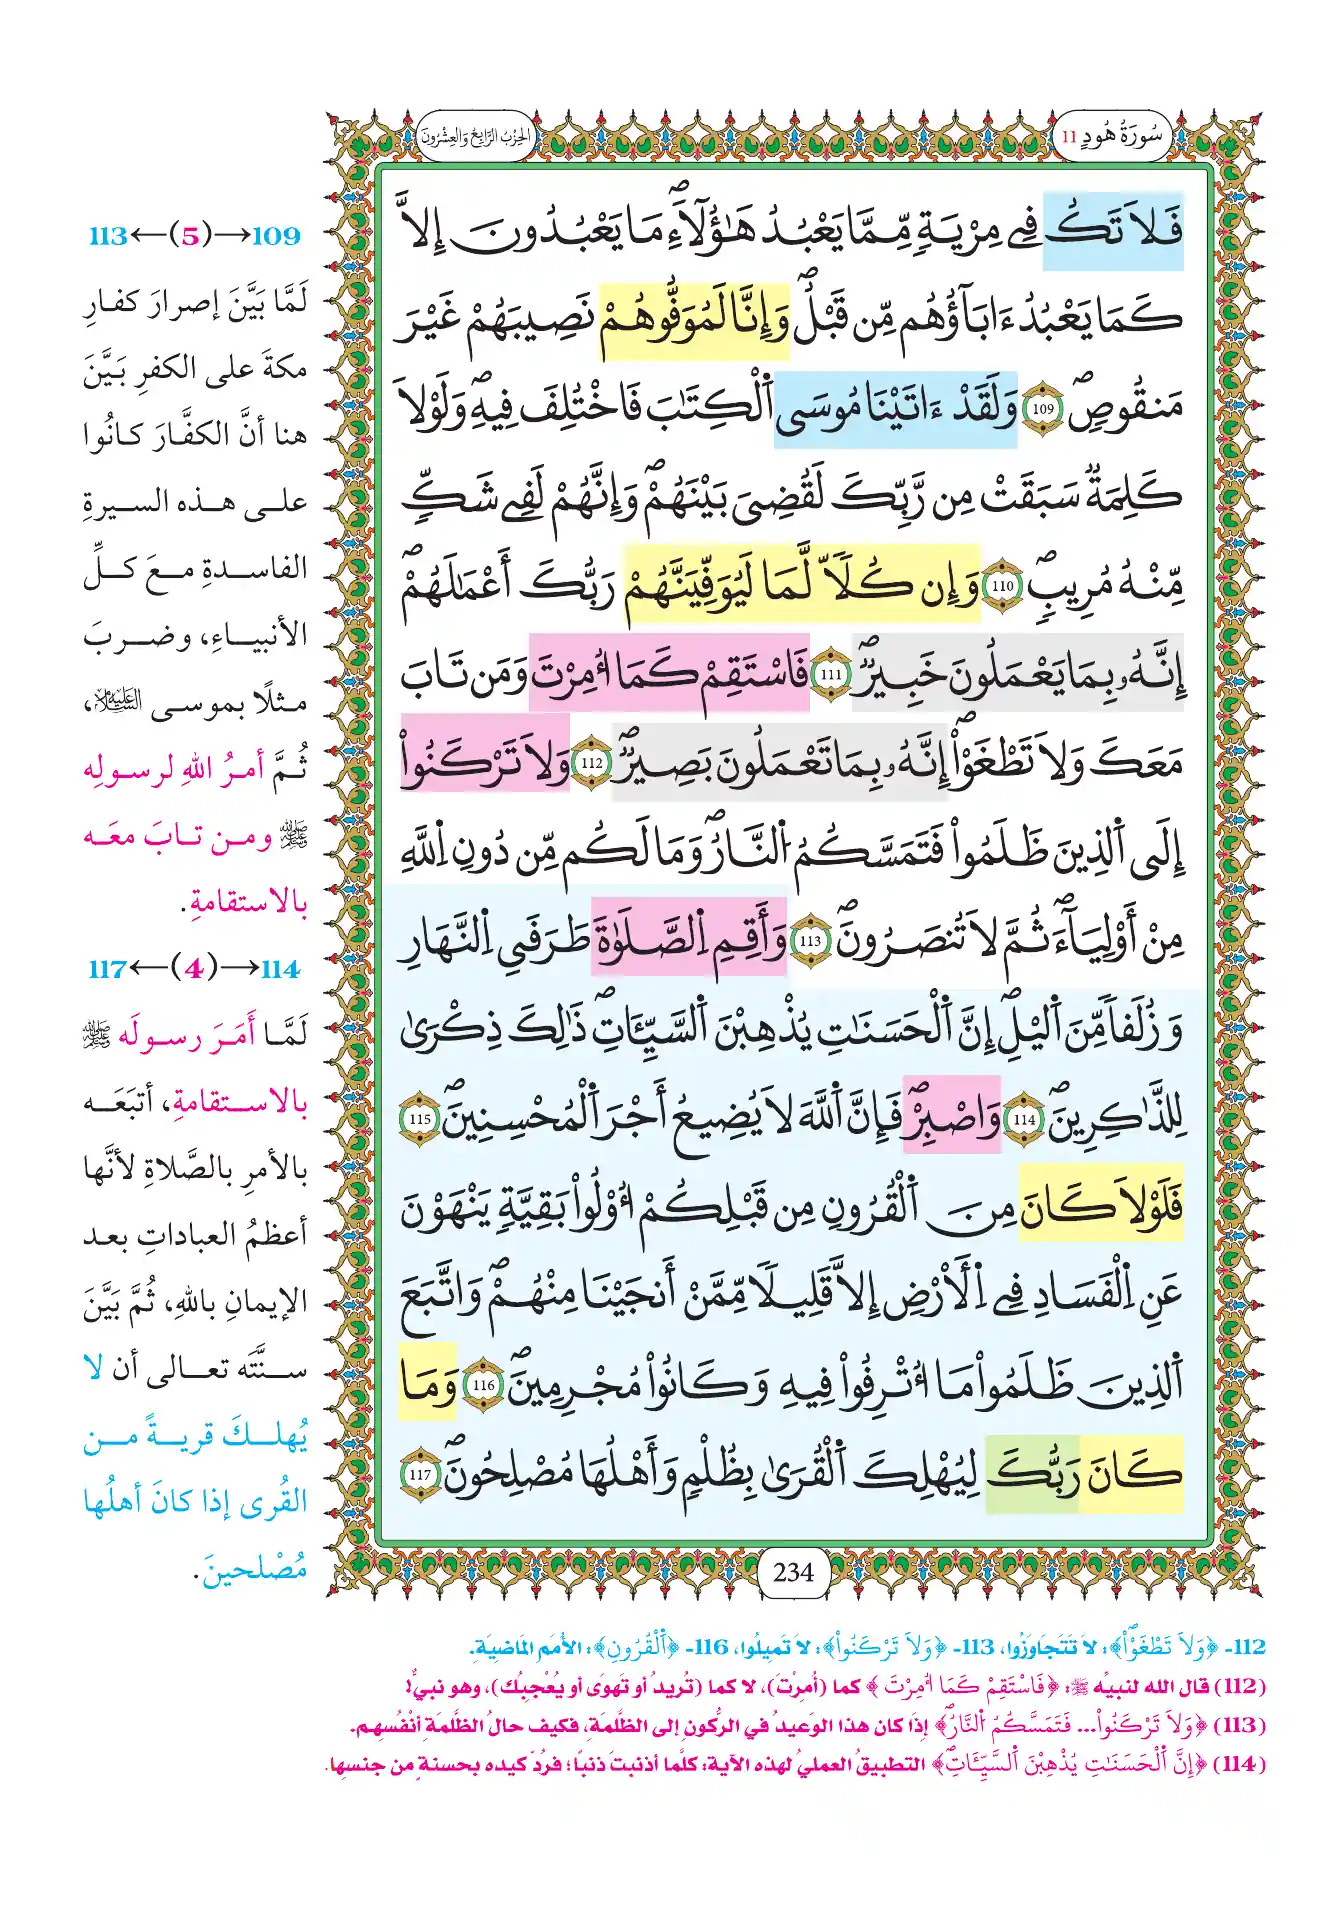 سُورَةُ هُودٍ 11
الحِزْبُ الرَّابِعُ وَالعِشْرُونَ
فَلَا تَكُ فِے مِرْيَةٍ مِّمَّا يَعْبُدُ هَٰٓؤُلَآءِۖ مَا يَعْبُدُونَ إِلَّا
كَمَا يَعْبُدُ ءَابَآؤُهُم مِّن قَبْلُۖ وَإِنَّا لَمُوَفُّوهُمْ نَصِيبَهُمْ غَيْرَ
مَنقُوصٖۖ 109 وَلَقَدْ ءَاتَيْنَا مُوسَى اَ۬لْكِتَٰبَ فَاخْتُلِفَ فِيهِۖ وَلَوْلَا
كَلِمَةٞ سَبَقَتْ مِن رَّبِّكَ لَقُضِيَ بَيْنَهُمْۖ وَإِنَّهُمْ لَفِے شَكّٖ
مِّنْهُ مُرِيبٖۖ 110 وَإِن كُلّاٗ لَّمَا لَيُوَفِّيَنَّهُمْ رَبُّكَ أَعْمَٰلَهُمْۖ
إِنَّهُۥ بِمَا يَعْمَلُونَ خَبِيرٞۖ 111 فَاسْتَقِمْ كَمَا أُمِرْتَ وَمَن تَابَ
مَعَكَ وَلَا تَطْغَوْاْۖ إِنَّهُۥ بِمَا تَعْمَلُونَ بَصِيرٞۖ 112 وَلَا تَرْكَنُواْ
إِلَى اَ۬لذِينَ ظَلَمُواْ فَتَمَسَّكُمُ اُ۬لنَّارُۖ وَمَا لَكُم مِّن دُونِ اِ۬للَّهِ
مِنْ أَوْلِيَآءَۖ ثُمَّ لَا تُنصَرُونَۖ 113 وَأَقِمِ اِ۬لصَّلَوٰةَ طَرَفَيِ اِ۬لنَّهَارِ
وَزُلَفاٗ مِّنَ اَ۬ليْلِۖ إِنَّ اَ۬لْحَسَنَٰتِ يُذْهِبْنَ اَ۬لسَّيِّـَٔاتِۖ ذَٰلِكَ ذِكْرَىٰ
لِلذَّٰكِرِينَۖ 114 وَاصْبِرْۖ فَإِنَّ اَ۬للَّهَ لَا يُضِيعُ أَجْرَ اَ۬لْمُحْسِنِينَۖ 115
فَلَوْلَا كَانَ مِنَ اَ۬لْقُرُونِ مِن قَبْلِكُمْ أُوْلُواْ بَقِيَّةٖ يَنْهَوْنَ
عَنِ اِ۬لْفَسَادِ فِے اِ۬لْأَرْضِ إِلَّا قَلِيلاٗ مِّمَّنْ أَنجَيْنَا مِنْهُمْۖ وَاتَّبَعَ
اَ۬لذِينَ ظَلَمُواْ مَا أُتْرِفُواْ فِيهِ وَكَانُواْ مُجْرِمِينَۖ 116 وَمَا
كَانَ رَبُّكَ لِيُهْلِكَ اَ۬لْقُرَىٰ بِظُلْمٖ وَأَهْلُهَا مُصْلِحُونَۖ 117
234
109→(5)←113
لَمَّا بَيَّنَ إصرارَ كفارِ
مكةَ على الكفرِ بَيَّنَ
هنا أنَّ الكفَّارَ كانُوا
على هذه السيرةِ
الفاسدةِ معَ كلِّ
الأنبياءِ، وضربَ
مثلًا بموسى عليه السلام،
ثُمَّ أمرُ اللهِ لرسولِه
ﷺ ومن تابَ معَه
بالاستقامةِ.
114→(4)←117
لَمَّا أَمَرَ رسولَه ﷺ
بالاستقامةِ، أتبَعَه
بالأمرِ بالصَّلاةِ لأنَّها
أعظمُ العباداتِ بعد
الإيمانِ باللهِ، ثُمَّ بَيَّنَ
سنَّتَه تعالى أن لا
يُهلكَ قريةً من
القُرى إذا كانَ أهلُها
مُصْلحينَ.
112- ﴿وَلَا تَطْغَوْاْۖ﴾: لا تَتَجَاوَزُوا، 113- ﴿وَلَا تَرْكَنُواْ﴾: لا تَمِيلُوا، 116- ﴿اَ۬لْقُرُونِ﴾: الأُمَمِ المَاضِيَةِ.
(112) قال الله لنبيِّه ﷺ: ﴿فَاسْتَقِمْ كَمَا أُمِرْتَ﴾ كما (أُمِرْتَ)، لا كما (تُريدُ أو تَهوَى أو يُعْجِبُك)، وهو نبيٌّ!
(113) ﴿وَلَا تَرْكَنُواْ... فَتَمَسَّكُمُ اُ۬لنَّارُۖ﴾ إذَا كان هذا الوَعيدُ في الرُّكونِ إلى الظَّلمَةِ، فكيف حالُ الظَّلَمَةِ أنْفُسِهم.
(114) ﴿إِنَّ اَ۬لْحَسَنَٰتِ يُذْهِبْنَ اَ۬لسَّيِّـَٔاتِۖ﴾ التطبيقُ العمليُّ لهذه الآيةِ: كلَّما أذنبتَ ذنبًا؛ فرُدَّ كيدَه بحسنةٍ من جنسِها.